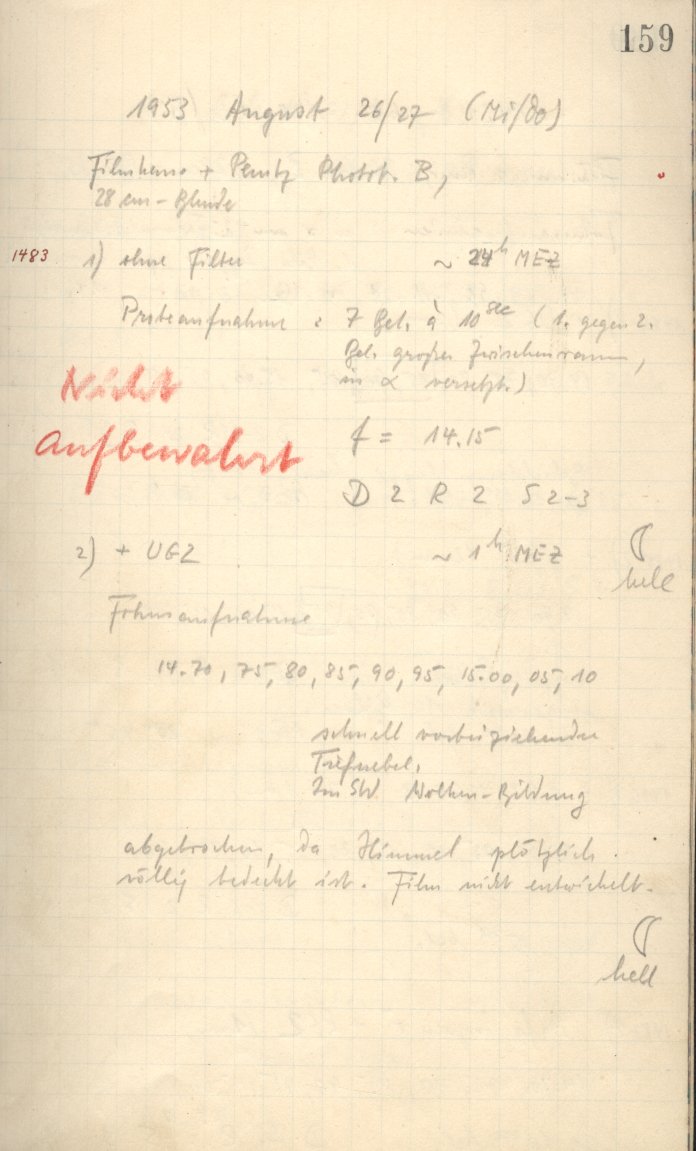 159
1953 August 26/27 (Mi/Do)
Filmkam. + Photot. B,
28 cm - Blende
1483 1) ohne Filter ~ 24h MEZ
Probeaufnahme : 7 Bel. à 10sec (1. gegen 2.
Bel. großer Zwischenraum,
in α versetzt.)
Nicht
aufbewahrt
f = 14.15
D 2 R 2 S 2-3
2) + UG2 ~ 1h MEZ
hell
Fokusaufnahme
14.70, 75, 80, 85, 90, 95, 15.00, 05, 10
schnell vorbeiziehender
Tiefnebel.
Im SW Wolken-Bildung
abgebrochen, da Himmel plötzlich
völlig bedeckt ist. Film nicht entwickelt.
hell